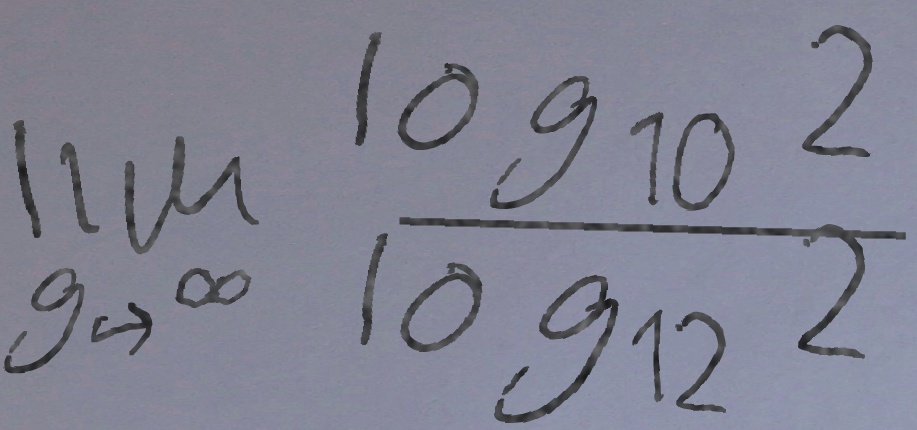 lim g→∞ log₁₀ 2 / log₁₂ 2